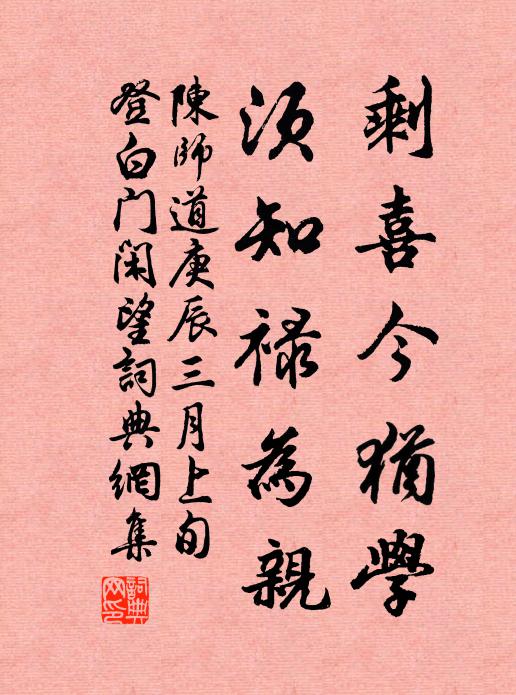 剩喜今猶學
須知祿為親
陳師道庚辰三月上旬
登白门闲望詞典網集
詞典
网印